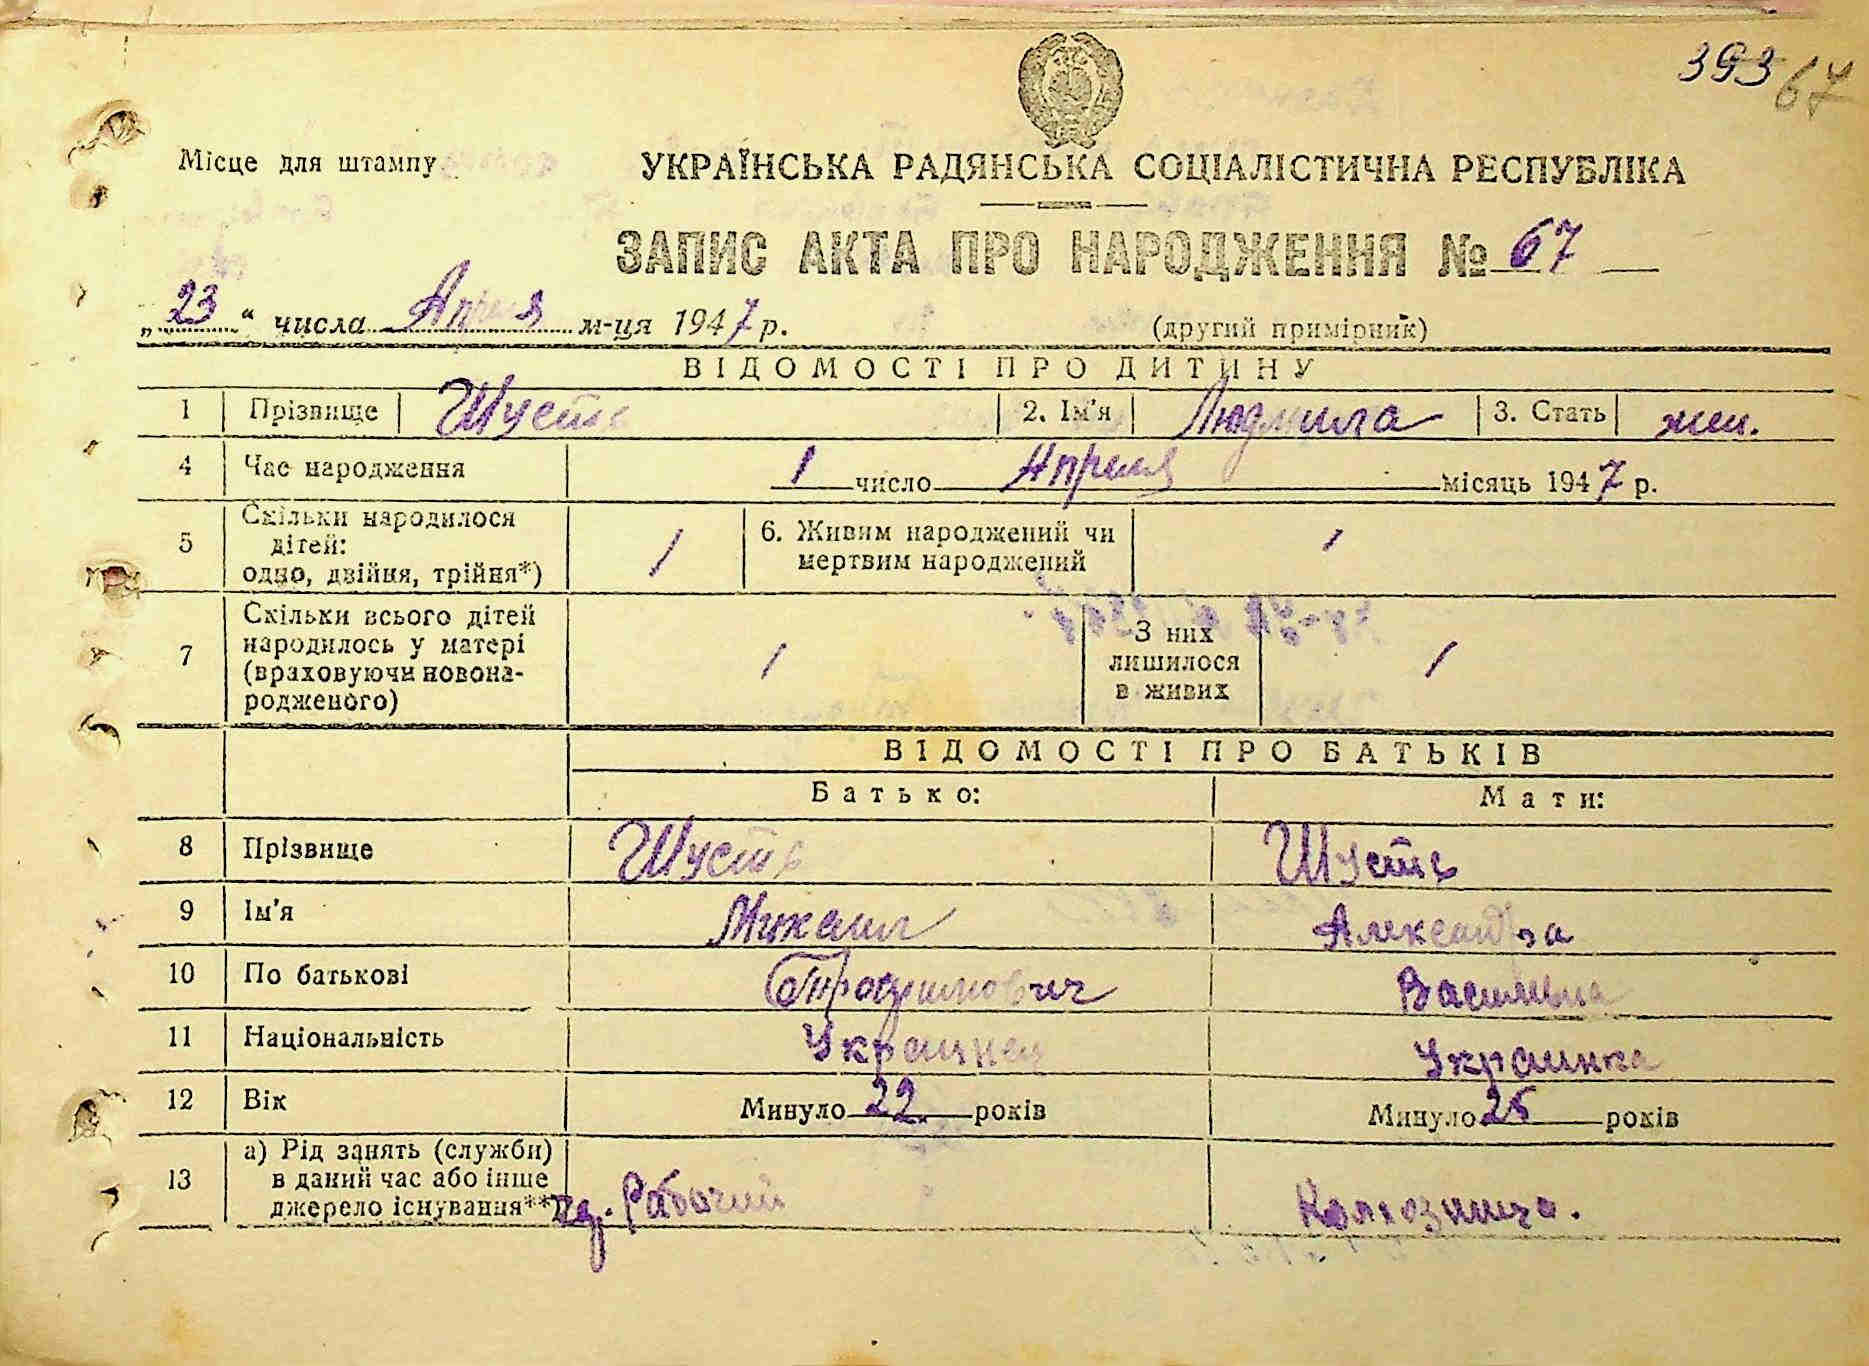 393 67
Місце для штампу
УКРАЇНСЬКА РАДЯНСЬКА СОЦІАЛІСТИЧНА РЕСПУБЛІКА
ЗАПИС АКТА ПРО НАРОДЖЕННЯ № 67
„23“ числа Апреля м-ця 1947 р.
(другий примірник)
ВІДОМОСТІ ПРО ДИТИНУ
1 Прізвище Шусть 2. Ім'я Людмила 3. Стать жен.
4 Час народження 1 число Апреля місяць 1947 р.
5 Скільки народилося дітей: одно, двійня, трійня*) 1 6. Живим народжений чи мертвим народжений 1
7 Скільки всього дітей народилось у матері (враховуючи новонародженого) 1 З них лишилося в живих 1
ВІДОМОСТІ ПРО БАТЬКІВ
Батько: Мати:
8 Прізвище Шусть Шусть
9 Ім'я Михаил Александра
10 По батькові Васильевна
11 Національність Украинец Украинка
12 Вік Минуло 22 років Минуло 25 років
13 а) Рід занять (служби) в даний час або інше джерело існування** Рабочий Колхозница.